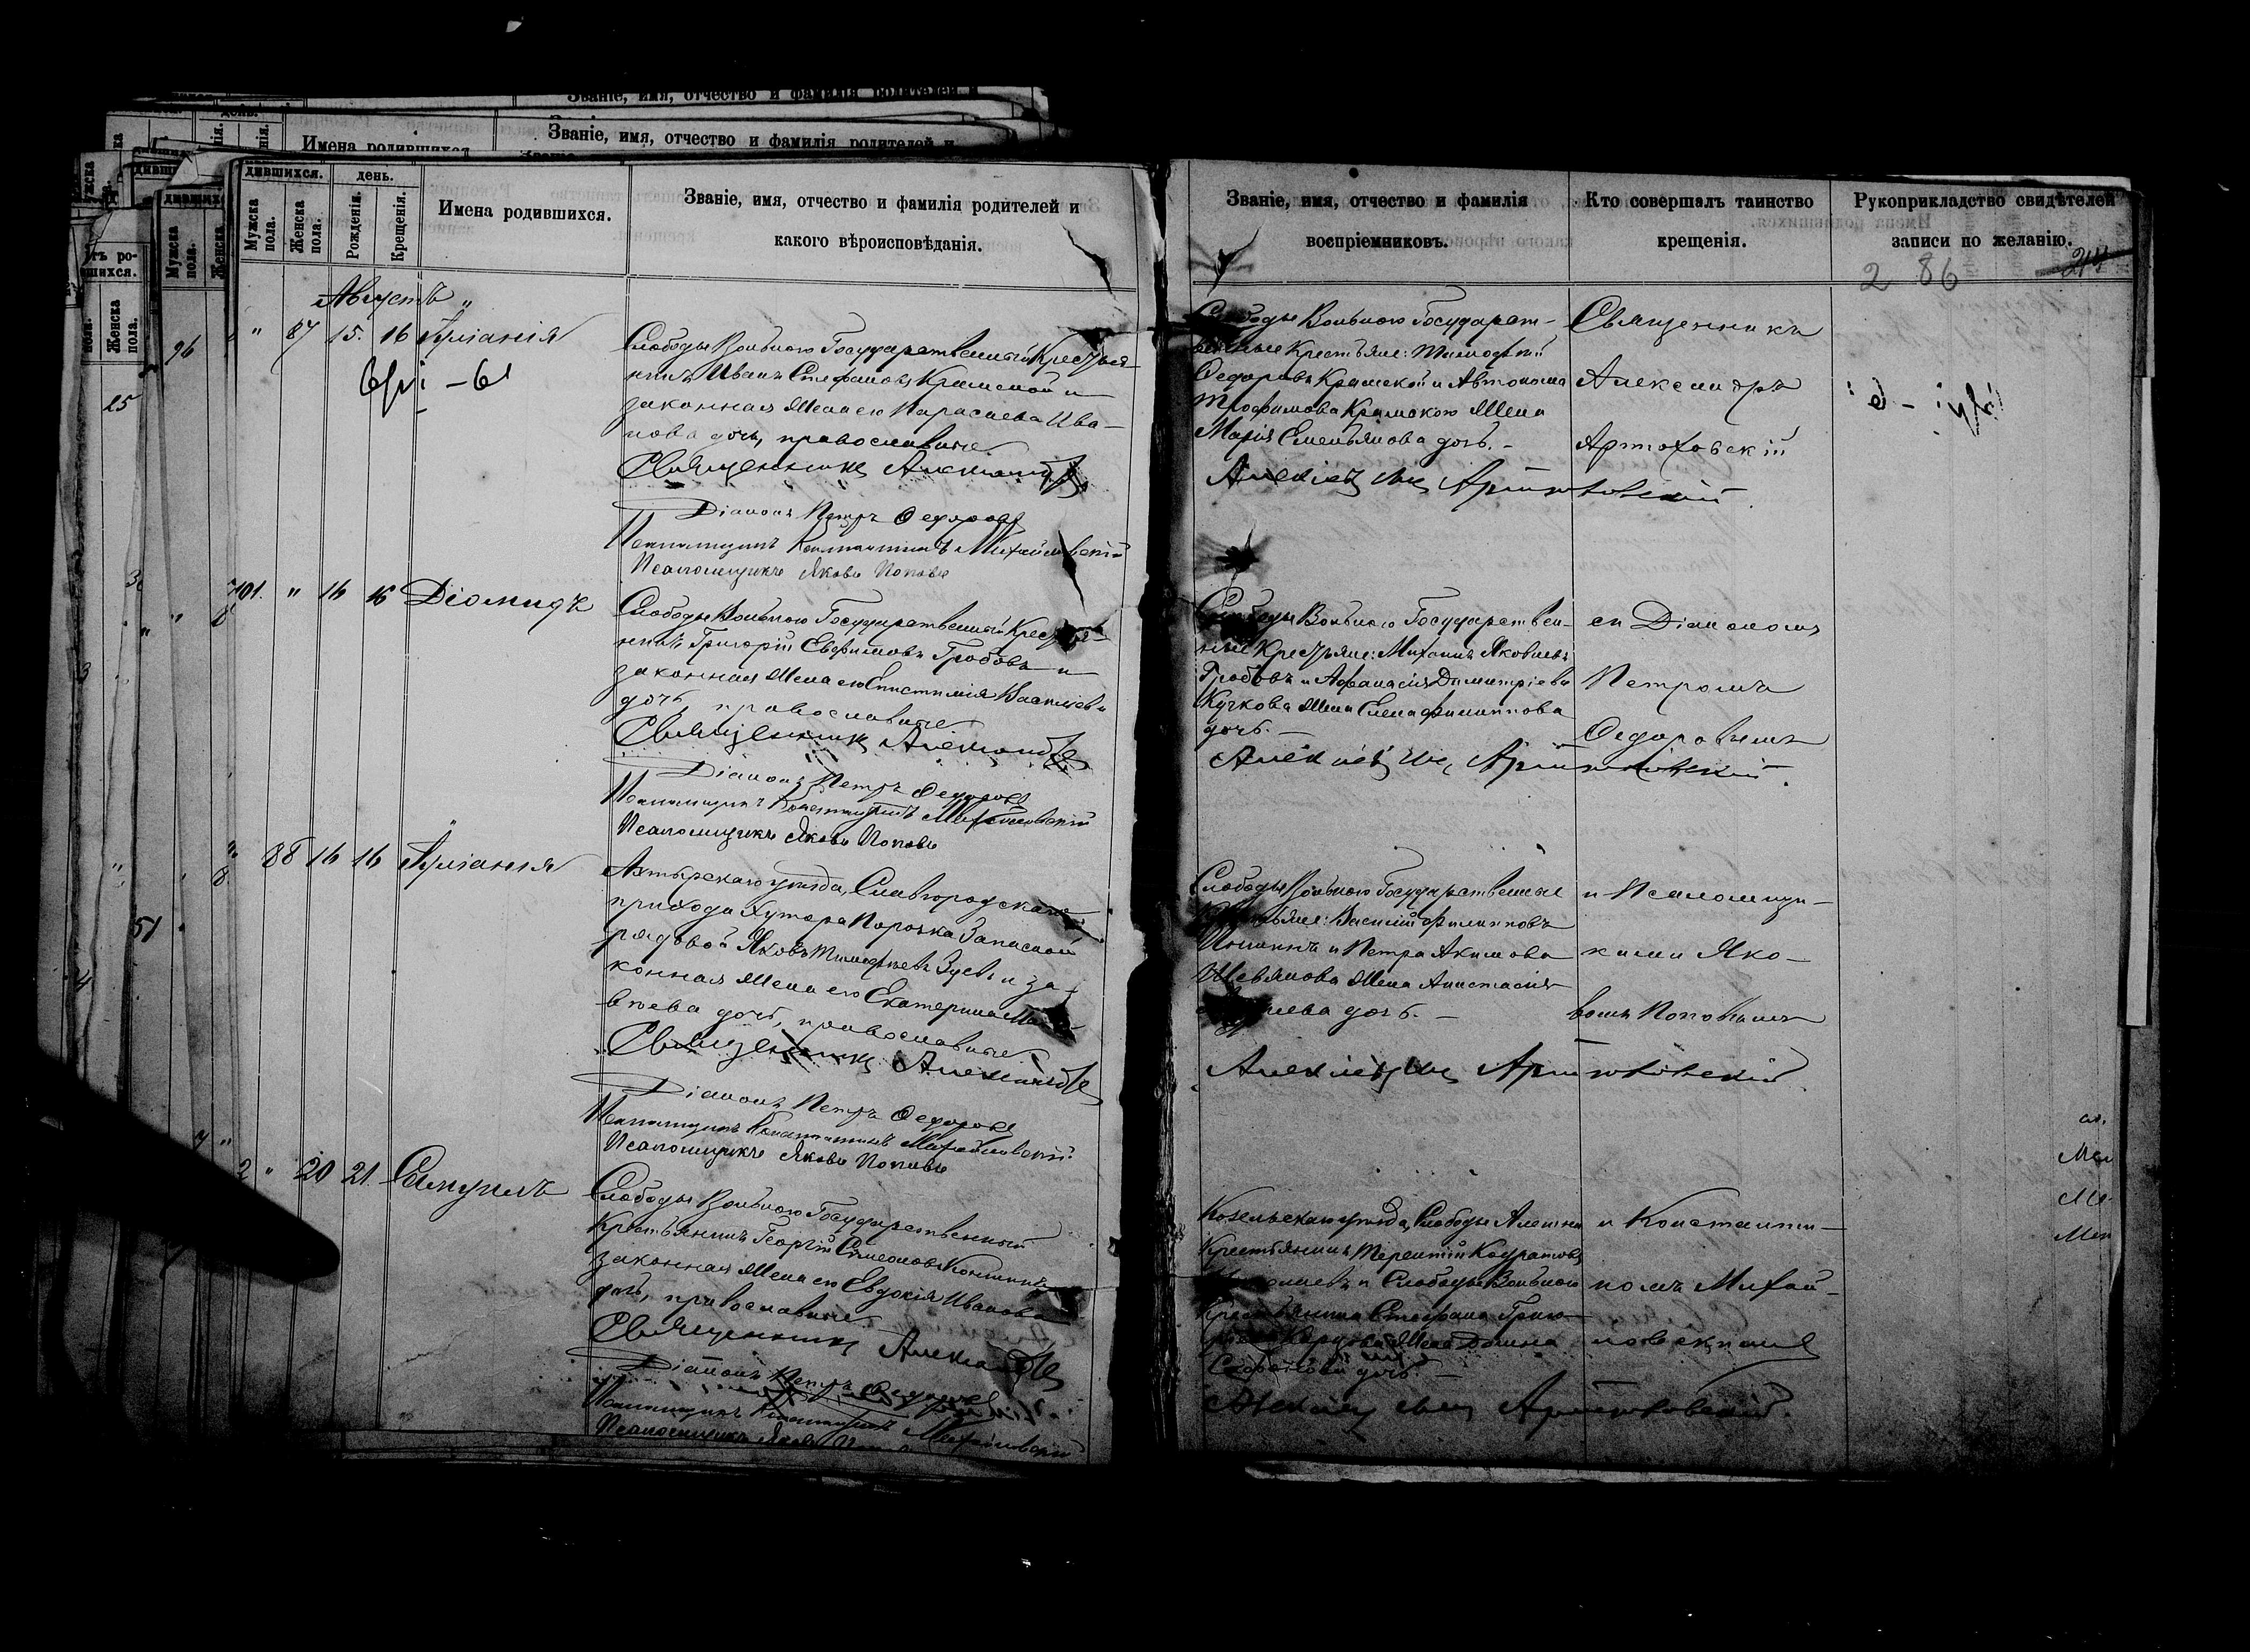 Званіе, имя, отчество и фамилія родителей и
Имена родившихся
Званіе, имя, отчество и фамилія родителей и
дившихся.
день.
Мужска пола.
Женска пола.
Рожденія.
Крещенія.
Имена родившихся.
Званіе, имя, отчество и фамилія родителей и
какого вѣроисповѣданія.
Августъ
" 87 15. 16 Іуліанія
Слободы Вольного Государственный Крестья-
нинъ Иванъ Стефановъ Крамской и
законная жена его Параскева Ива-
нова дочь, православные
Священникъ Александръ
Діаконъ Петръ Федоровъ
Псаломщикъ Константинъ Михайловскій
Псаломщикъ Яковъ Поповъ
101. " 16 16 Діомидъ
Слободы Вольного Государственный Крестья-
нинъ Григорій Евфимовъ Гробовъ и
законная жена его Епистимія Васильева
дочь, православные
Священникъ Александръ
Діаконъ Петръ Федоровъ
Псаломщикъ Константинъ Михайловскій
Псаломщикъ Яковъ Поповъ
" 88 16 16 Іуліанія
Ахтырскаго уѣзда, Славгородскаго
прихода Хутора Порозка Запасной
рядовой Яковъ Тимофѣевъ Зуевъ и за-
конная жена его Екатерина
дочь, православные
Священникъ Александръ
Діаконъ Петръ Федоровъ
Псаломщикъ Константинъ Михайловскій
Псаломщикъ Яковъ Поповъ
2 " 20 21. Самуилъ
Слободы Вольного Государственный
Крестьянинъ Георгій Симеоновъ
законная жена его Евдокія Иванова
дочь, православные
Священникъ Александръ
Діаконъ Петръ Федоровъ
Псаломщикъ Константинъ Михайловскій
Псаломщикъ Яковъ
Званіе, имя, отчество и фамилія
воспріемниковъ.
Кто совершалъ таинство
крещенія.
Рукоприкладство свидѣтелей
записи по желанію.
286
Слободы Вольного Государст-
венные Крестьяне: Тимофей
Федоровъ Крамской и Автонома
Трофимова Крамского жена
Марія Емельянова дочь. -
Алексіевъ сынъ Артюховскій
Священникъ
Александръ
Артюховскій
Слободы Вольного Государствен-
ные Крестьяне: Михаилъ Яковлевъ
Гробовъ и Афанасія Димитріева
Кучкова жена Елена Филиппова
дочь. -
Алексіевъ сынъ Артюховскій
съ Діакономъ
Петромъ
Федоровымъ
Слободы Вольного Государственные
Крестьяне: Василій Филипповъ
и Петра Акимова
жена Анастасія
дочь. -
Алексіевъ сынъ Артюховскій
и Псаломщи-
ками Яко-
вомъ Поповымъ
уѣзда, Слободы
Крестьянинъ Терентій
и Слободы Вольного
Крестьянина Стефана Григо-
жена Домна
дочь. -
сынъ Артюховскій
и Константи-
номъ Михай-
ловскимъ